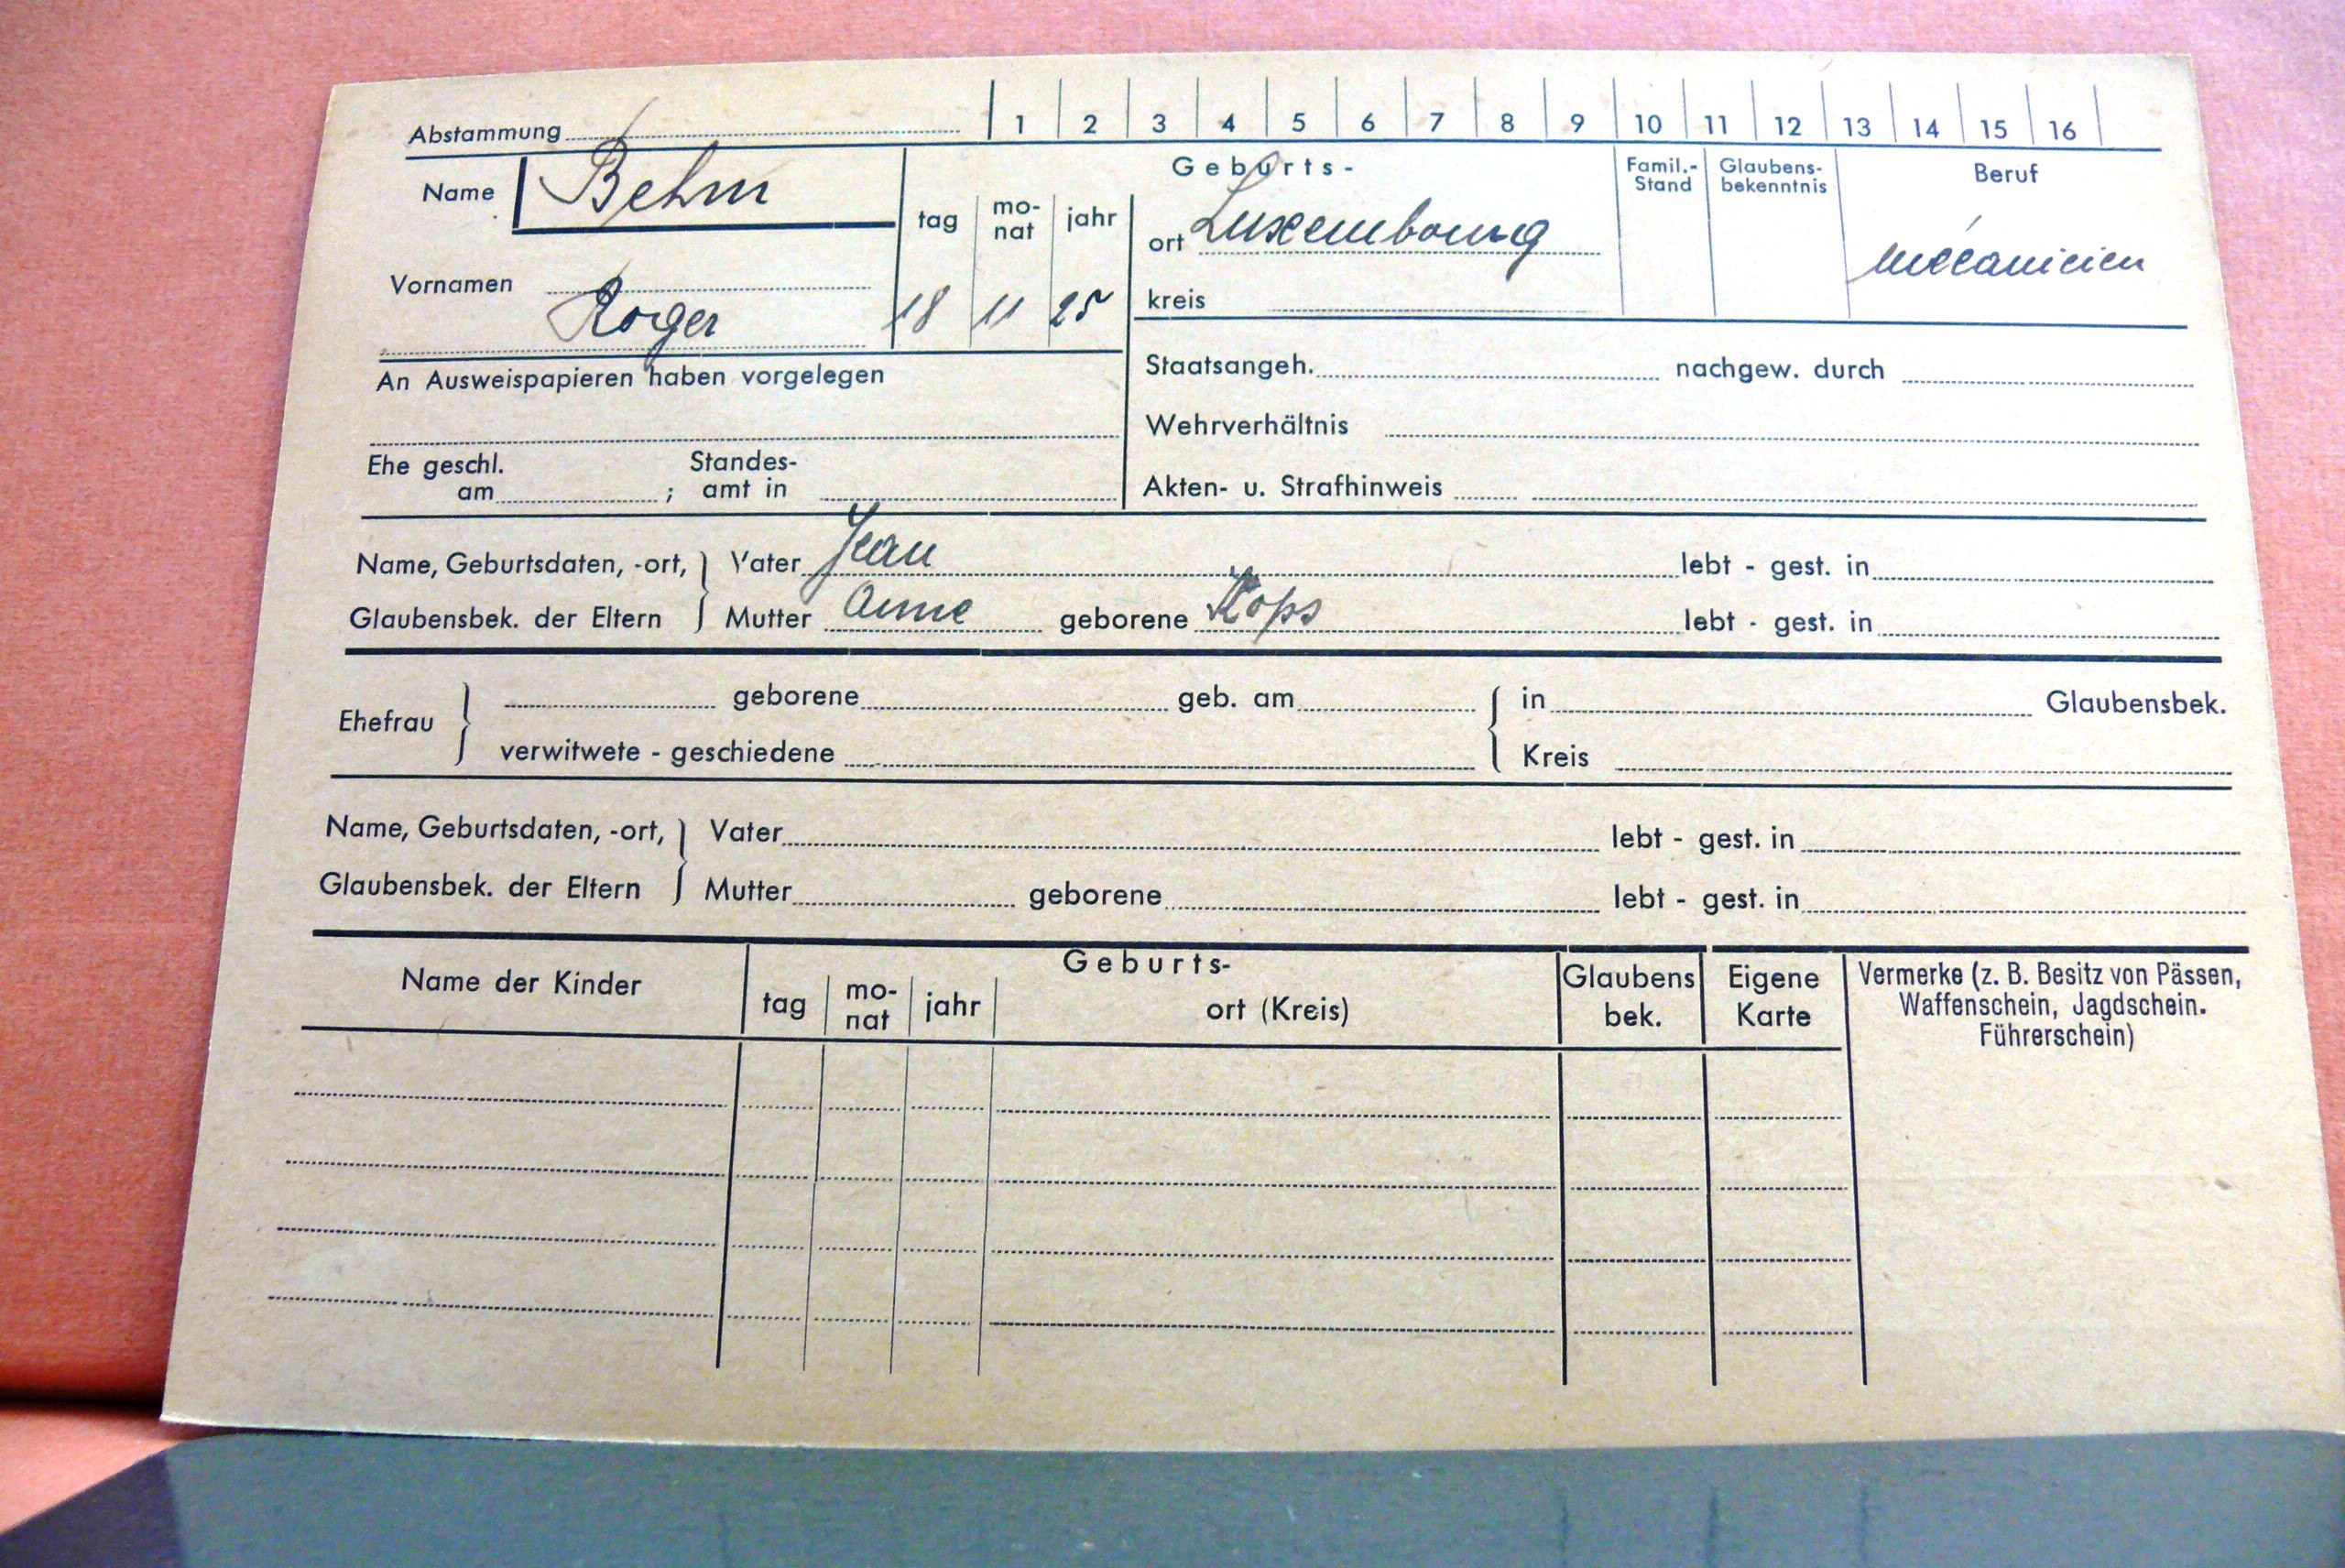 Abstammung 1 2 3 4 5 6 7 8 9 10 11 12 13 14 15 16
Name Behm
Geburts-
tag mo-nat jahr
ort Luxembourg
Famil.-Stand
Glaubens-bekenntnis
Beruf
mécanicien
Vornamen Roger
18 11 25
kreis
An Ausweispapieren haben vorgelegen
Staatsangeh. nachgew. durch
Wehrverhältnis
Ehe geschl. am ; Standes-amt in
Akten- u. Strafhinweis
Name, Geburtsdaten, -ort, Vater Jean lebt - gest. in
Glaubensbek. der Eltern Mutter Anne geborene Kops lebt - gest. in
Ehefrau geborene geb. am in Glaubensbek.
verwitwete - geschiedene Kreis
Name, Geburtsdaten, -ort, Vater lebt - gest. in
Glaubensbek. der Eltern Mutter geborene lebt - gest. in
Name der Kinder
Geburts-
tag mo-nat jahr ort (Kreis)
Glaubens bek.
Eigene Karte
Vermerke (z. B. Besitz von Pässen,
Waffenschein, Jagdschein.
Führerschein)